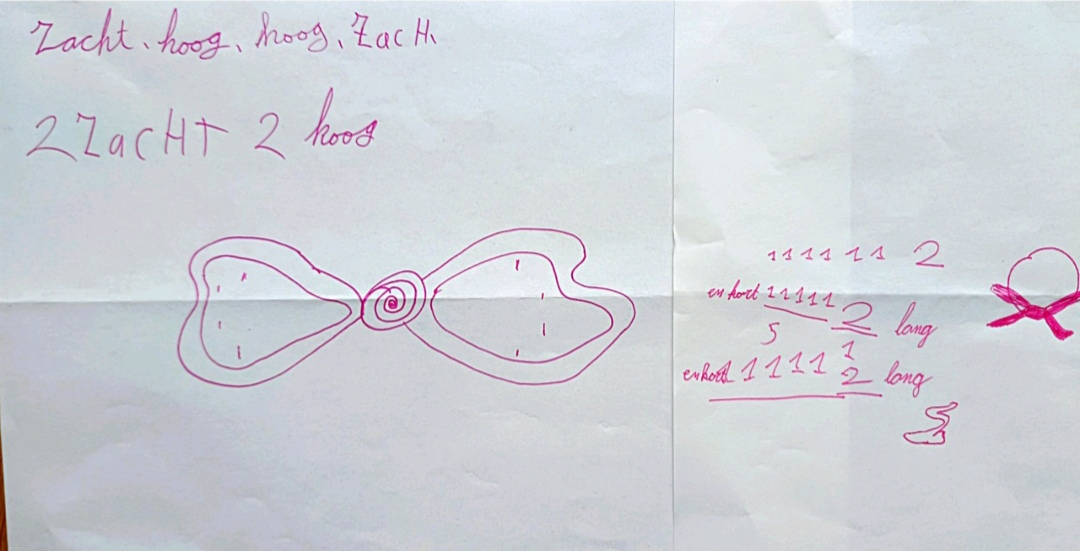 Zacht, hoog, hoog, ZacH,
2 ZacHT 2 hoog
1 1 1 1 1 1 1 2
en kort 1 1 1 1 1 2 lang
5 1
en kort 1 1 1 1 2 lang